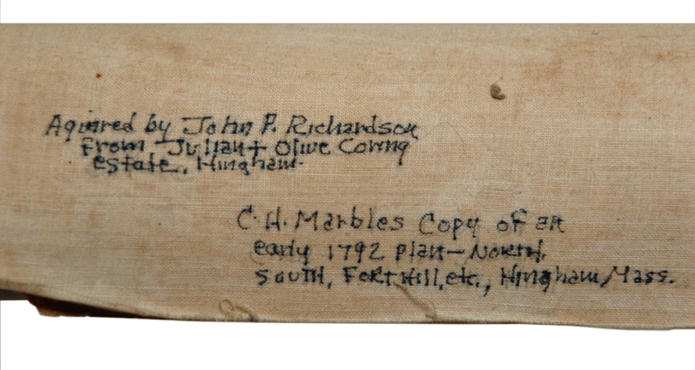 Aquired by John P. Richardson
From Julian + Olive Coring
estate, Hingham.
C. H. Marbles Copy of an
early 1792 plan - North,
South, Fort Hill, etc., Hingham, Mass.